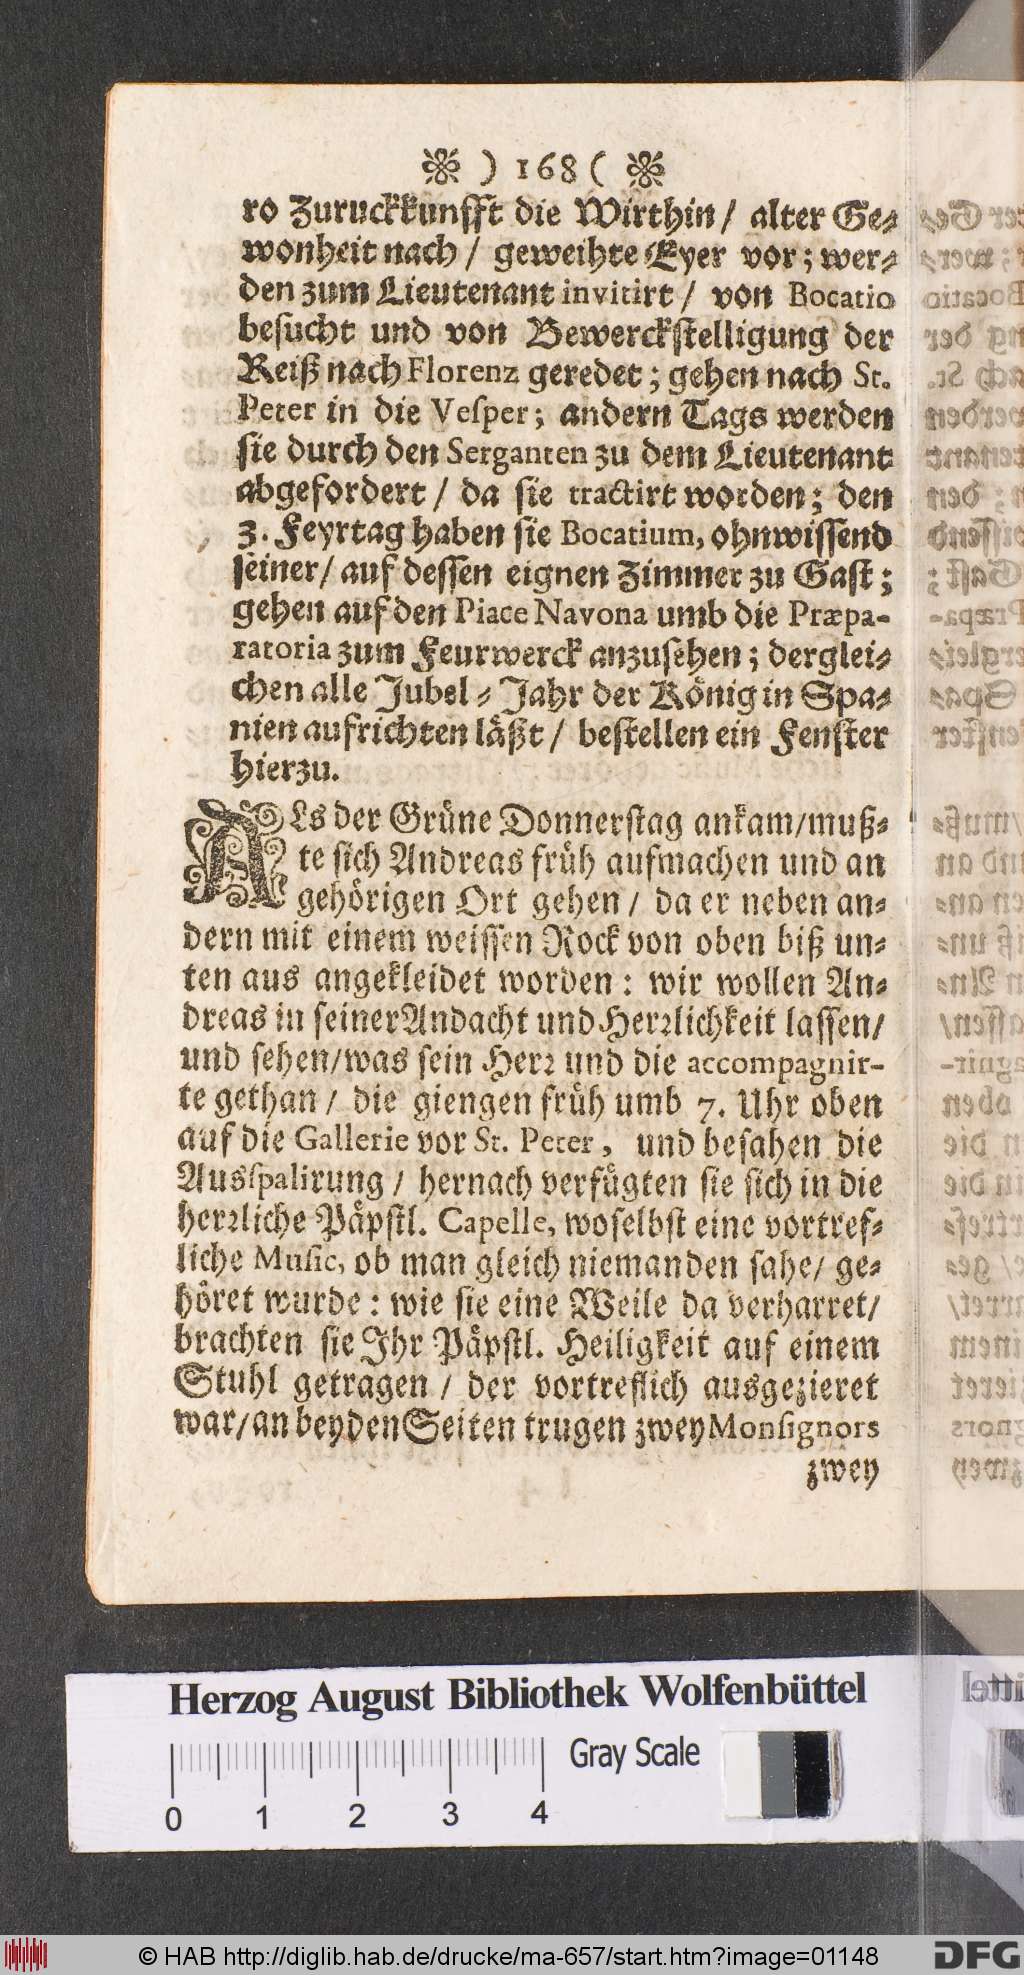 ❀ ) 168 ( ❀
ro Zuruckkunfft die Wirthin / alter Ge-
wonheit nach / geweihte Eyer vor; wer-
den zum Lieutenant invitirt / von Bocatio
besucht und von Bewerckstelligung der
Reiß nach Florenz geredet; gehen nach St.
Peter in die Vesper; andern Tags werden
sie durch den Serganten zu dem Lieutenant
abgefordert / da sie tractirt worden; den
3. Feyrtag haben sie Bocatium, ohnwissend
seiner / auf dessen eignen Zimmer zu Gast;
gehen auf den Piace Navona umb die Præpa-
ratoria zum Feurwerck anzusehen; derglei-
chen alle Jubel-Jahr der König in Spa-
nien aufrichten läßt / bestellen ein Fenster
hierzu.
ALs der Grüne Donnerstag ankam / muß-
te sich Andreas früh aufmachen und an
gehörigen Ort gehen / da er neben an-
dern mit einem weissen Rock von oben biß un-
ten aus angekleidet worden: wir wollen An-
dreas in seiner Andacht und Herrlichkeit lassen /
und sehen / was sein Herr und die accompagnir-
te gethan / die giengen früh umb 7. Uhr oben
auf die Gallerie vor St. Peter, und besahen die
Ausspalirung / hernach verfügten sie sich in die
herrliche Päpstl. Capelle, woselbst eine vortref-
liche Music, ob man gleich niemanden sahe / ge-
höret wurde: wie sie eine Weile da verharret /
brachten sie Ihr Päpstl. Heiligkeit auf einem
Stuhl getragen / der vortreflich ausgezieret
war / an beyden Seiten trugen zwey Monsignors
zwey
Herzog August Bibliothek Wolfenbüttel
Gray Scale
0 1 2 3 4
© HAB http://diglib.hab.de/drucke/ma-657/start.htm?image=01148
DFG